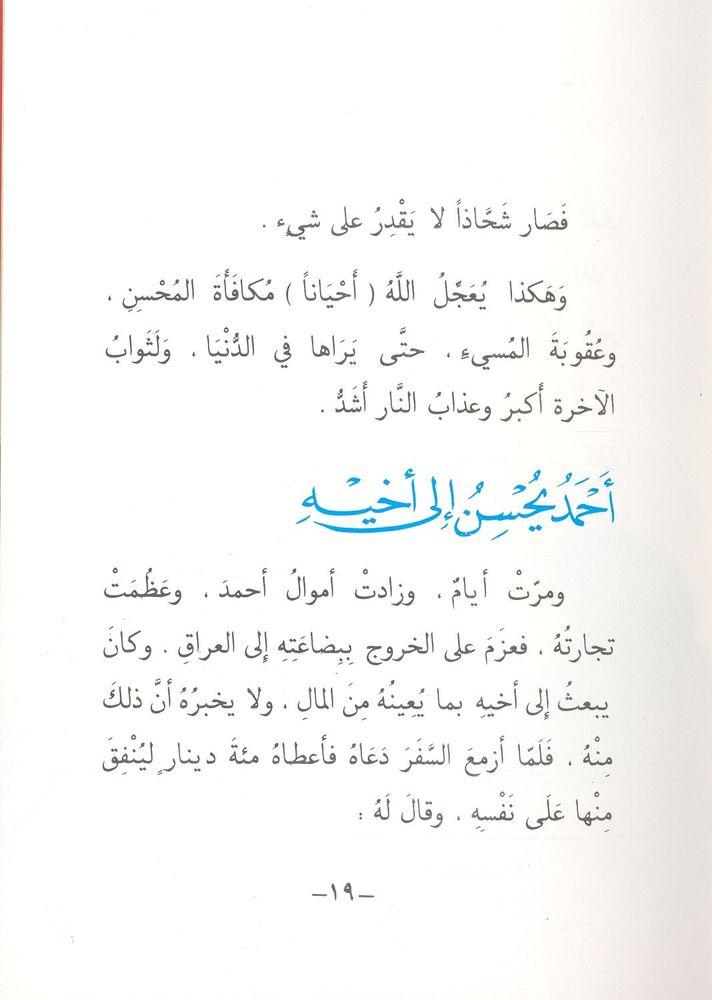 فَصَار شَحَّاذاً لا يَقْدِرُ على شيءٍ .
وَهَكذا يُعَجِّلُ اللَّهُ ( أَحْيَاناً ) مُكافَأَةَ المُحْسنِ ،
وعُقُوبَةَ المُسيءِ ، حتَّى يَرَاها في الدُّنْيَا ، وَلَثَوابُ
الآخرة أَكبرُ وعذابُ النَّار أَشَدُّ .
أَحْمَدُ يُحْسِنُ إلى أخيْهِ
ومرّتْ أيامٌ ، وزادتْ أموالُ أحمدَ ، وعَظُمَتْ
تجارتُهُ ، فعزَمَ على الخروج بِبِضاعَتِهِ إلى العراقِ . وكانَ
يبعثُ إلى أخيهِ بما يُعِينُهُ مِنَ المالِ ، ولا يخبرُهُ أنَّ ذلكَ
مِنْهُ ، فَلَمّا أزمعَ السَّفَرَ دَعَاهُ فأعطاهُ مئةَ دينارٍ ليُنْفِقَ
مِنْها عَلَى نَفْسِهِ ، وقالَ لَهُ :
–١٩–